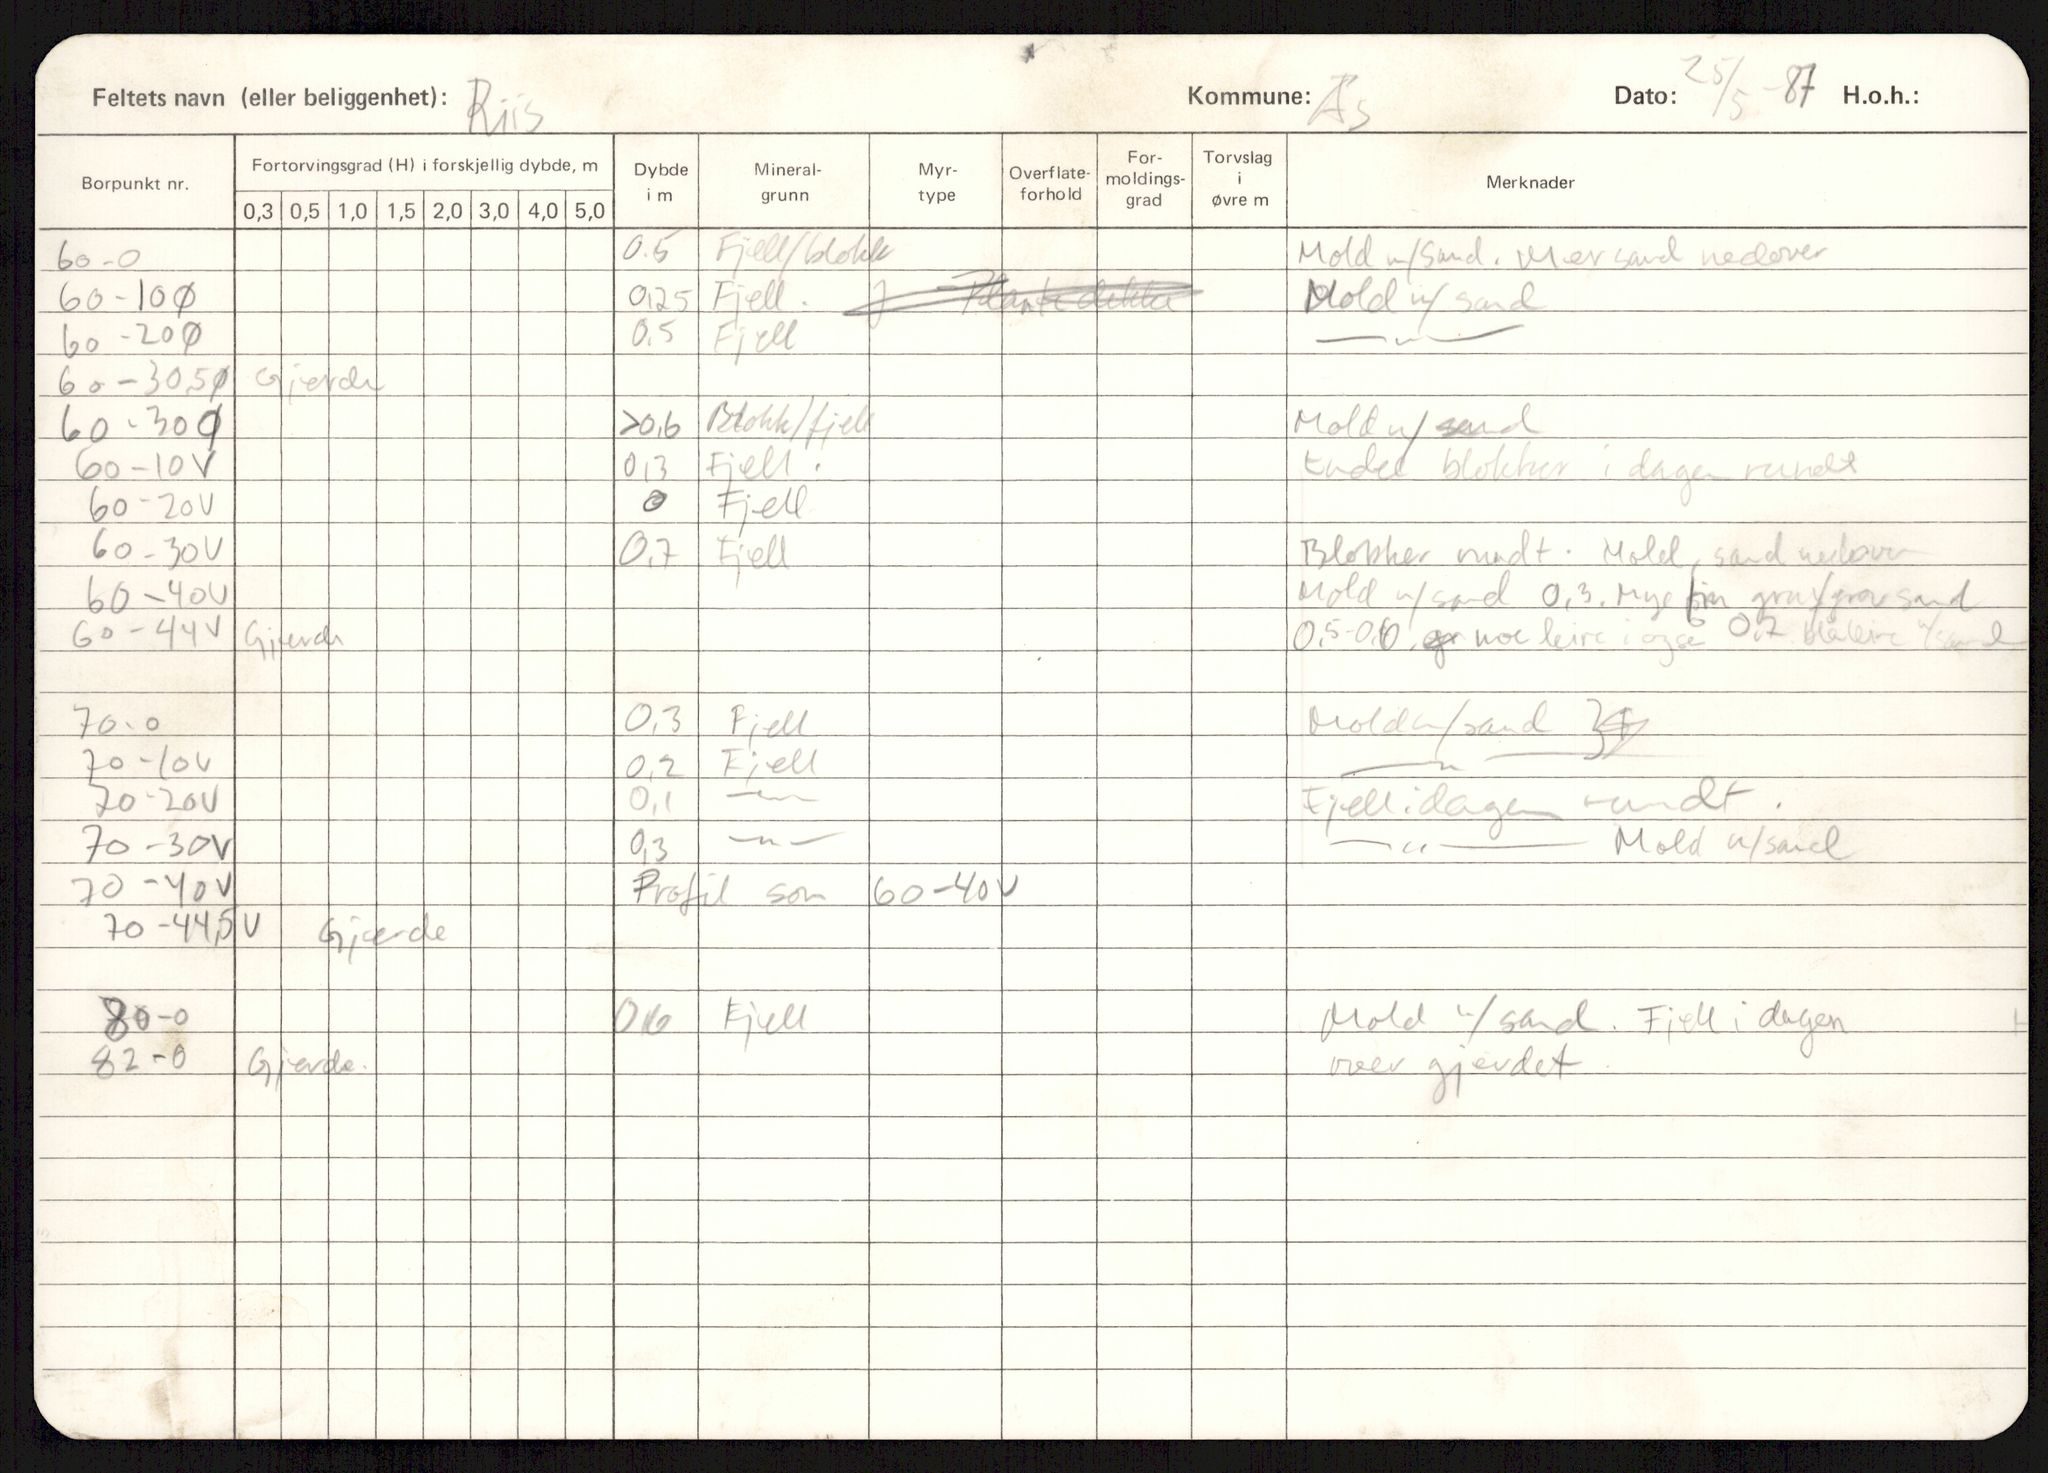 Feltets navn (eller beliggenhet): Riis Kommune: Ås Dato: 25/5-87 H.o.h.:
Borpunkt nr. Fortorvingsgrad (H) i forskjellig dybde, m Dybde i m Mineral-grunn Myr-type Overflate-forhold For-moldings-grad Torvslag i øvre m Merknader
0,3 0,5 1,0 1,5 2,0 3,0 4,0 5,0
60-0 0.5 Fjell/blokk Mold m/sand. Mer sand nedover
60-10Ø 0,25 Fjell. Plantedekke Mold m/sand
60-20Ø 0,5 Fjell —〃—
60-30,5Ø Gjerde
60-30Ø >0,6 Blokk/fjell Mold m/sand
60-10V 0,3 Fjell. Endel blokker i dagen rundt
60-20V 0 Fjell
60-30V 0,7 Fjell Blokker rundt. Mold, sand nedover
60-40V Mold m/sand 0,3. Mye fin grus/grov sand
60-44V Gjerde 0,5-0,6, noe leire i også 0,7 blåleire m/sand
70-0 0,3 Fjell Mold m/sand
70-10V 0,2 Fjell —〃—
70-20V 0,1 —〃— Fjell i dagen rundt.
70-30V 0,3 —〃— —〃— Mold m/sand
70-40V Profil som 60-40V
70-44,5V Gjerde
80-0 0,6 Fjell Mold m/sand. Fjell i dagen
82-0 Gjerde. over gjerdet